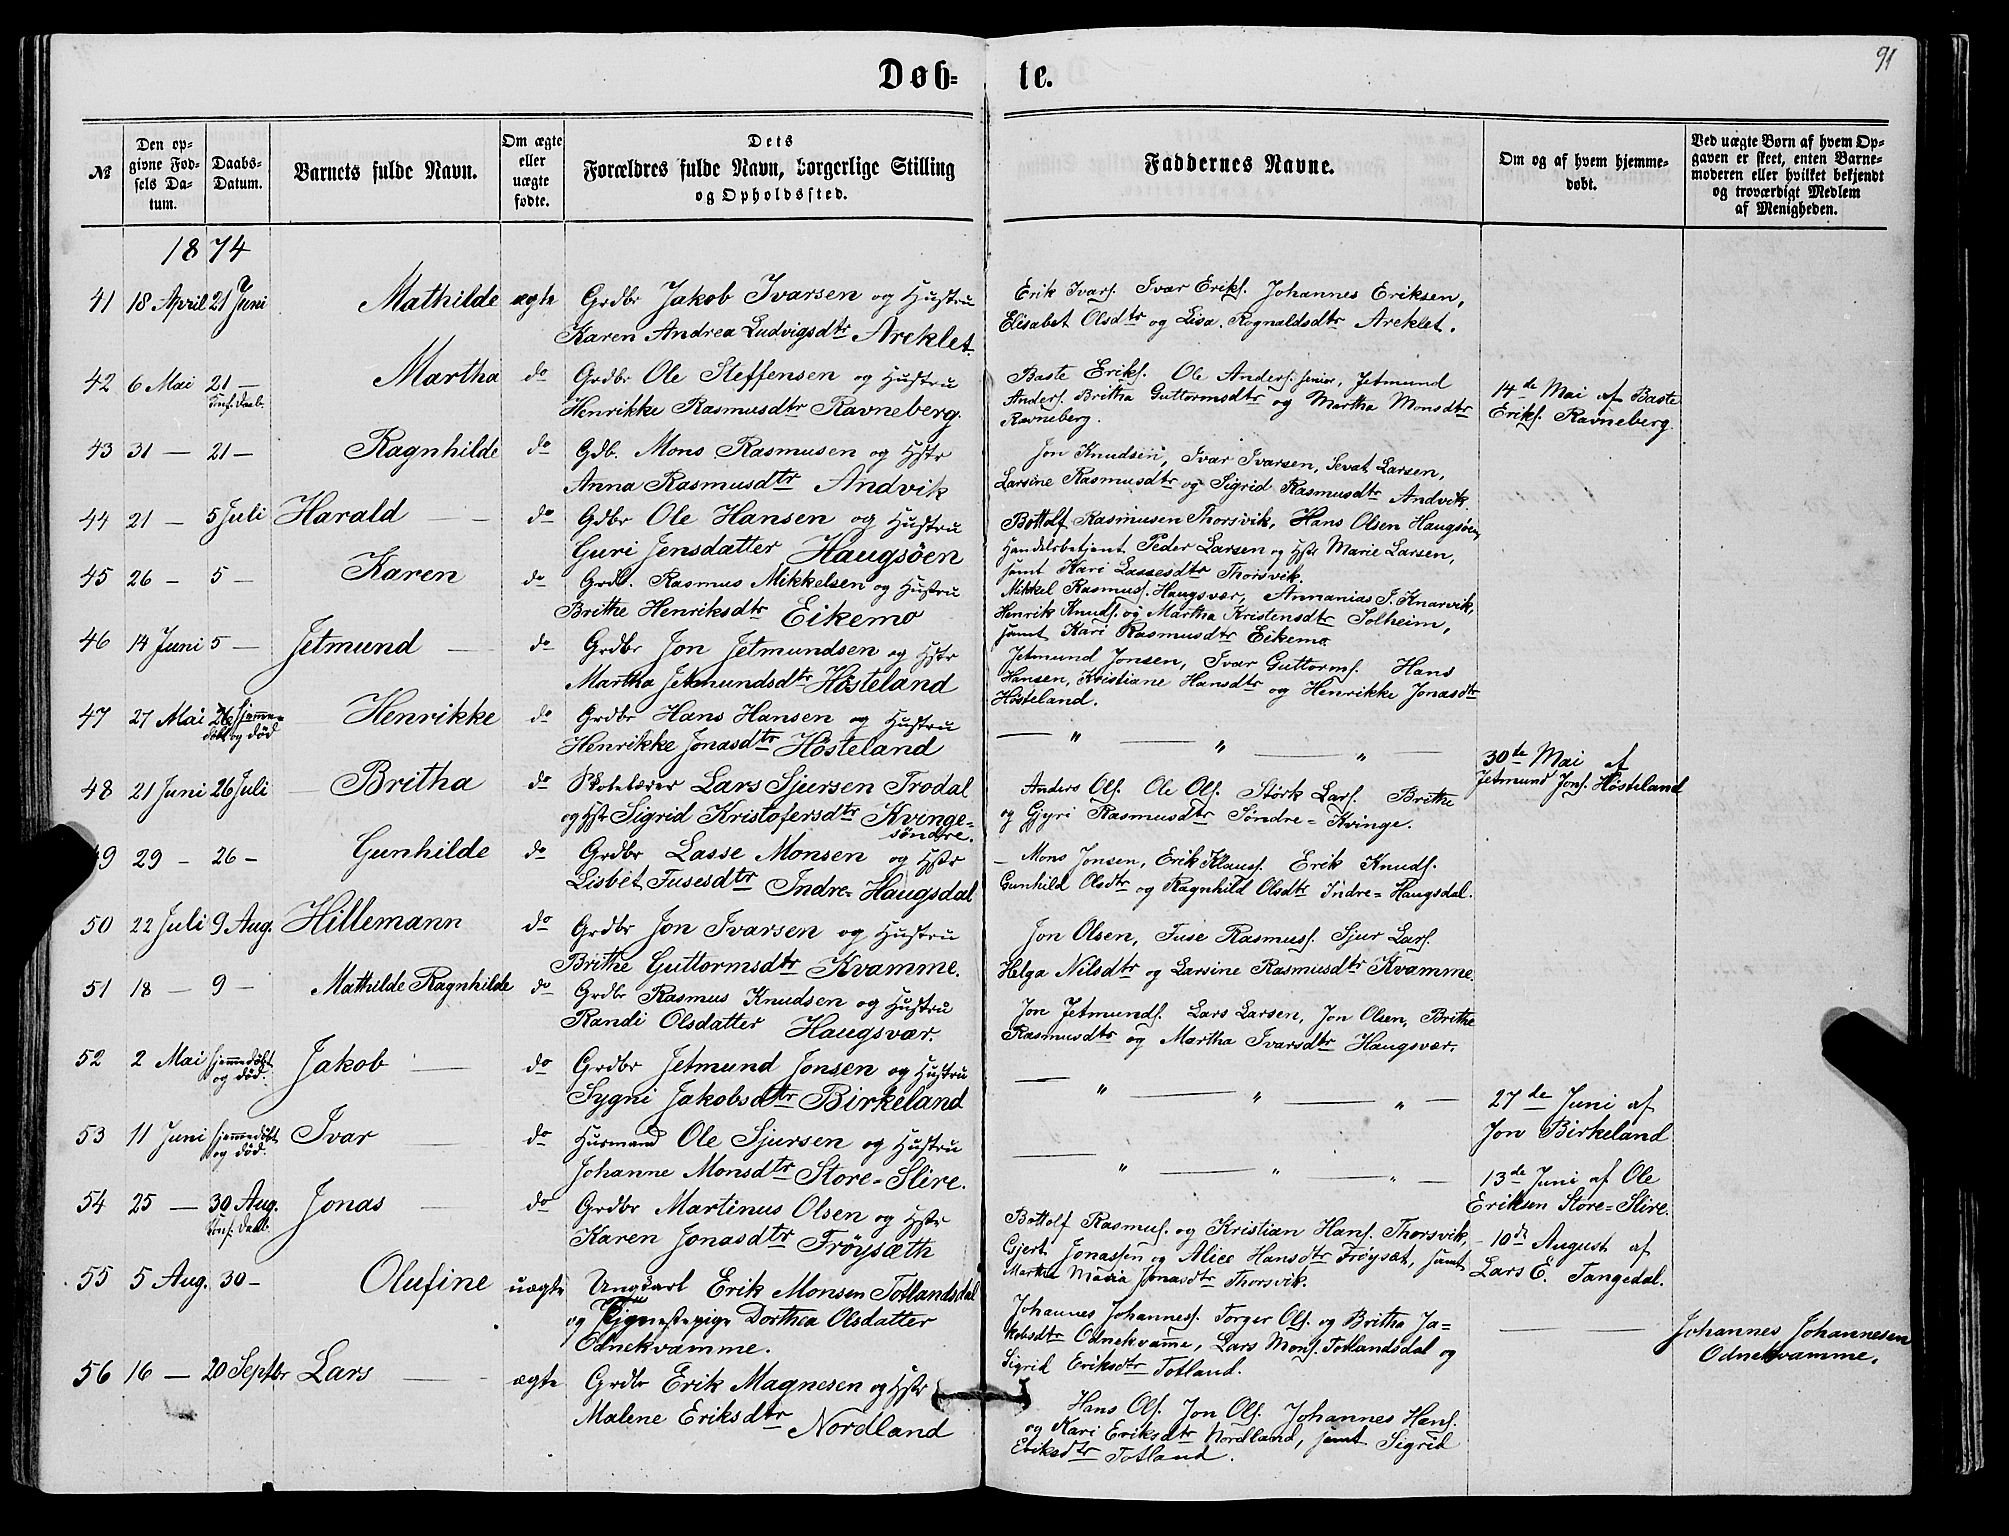 Døb-
te.
91
№
Den op-
givne Fød-
sels Da-
tum.
Daabs-
Datum.
Barnets fulde Navn.
Om ægte
eller
uægte
fødte.
Dets
Forældres fulde Navn, borgerlige Stilling
og Opholdssted.
Faddernes Navne.
Om og af hvem hjemme-
døbt.
Ved uægte Børn af hvem Op-
gaven er skeet, enten Barne-
moderen eller hvilket bekjendt
og troværdigt Medlem
af Menigheden.
1874
41 18 April 21 Juni Mathilde ægte Grdbr Jakob Ivarsen og Hustru
Karen Andrea Ludvigsdtr Areklet.
Erik Ivars. Ivar Eriks. Johannes Eriksen,
Elisabet Olsdtr og Lisa Rognaldsdtr Areklet.
42 6 Mai 21 — Martha do Grdbr Ole Steffensen og Hustru
Henrikke Rasmusdtr Ravneberg.
Baste Eriks. Ole Anders. senior, Jetmund
Anders. Britha Guttormsdtr og Martha Monsdtr
Ravneberg.
14de Mai af Baste
Eriks. Ravneberg.
43 31 — 21 — Ragnhilde do Gdb. Mons Rasmusen og Hstr
Anna Rasmusdtr Andvik
Jon Knudsen, Ivar Ivarsen, Sevat Larsen,
Larsine Rasmusdtr og Sigrid Rasmusdtr Andvik.
44 21 — 5 Juli Harald — do Gdbr Ole Hansen og Hustru
Guri Jensdatter Haugsöen
Bottolf Rasmusen Thorsvik, Hans Olsen Haugsöen,
Handelsbetjent Peder Larsen og Hstr Marie Larsen,
samt Kari Lassesdtr Thorsvik.
45 26 — 5 — Karen do Grdb. Rasmus Mikkelsen og Hustru
Brithe Henriksdtr Eikemo
Mikkel Rasmus. Haugsvær, Annanias J. Knarvik,
Henrik Knuds. og Martha Kristensdtr Solheim,
samt Kari Rasmusdtr Eikemo.
46 14 Juni 5 — Jetmund — do Grdbr Jon Jetmundsen og Hstr
Martha Jetmundsdtr Hösteland
Jetmund Jonsen, Ivar Guttorms. Hans
Hansen, Kristiane Hansdtr og Henrikke Jonasdtr
Hösteland.
47 27 Mai Hjemme-
døbt og död Henrikke do Grdbr Hans Hansen og Hustru
Henrikke Jonasdtr Hösteland
— " — " — " —
30te Mai af
Jetmund Jons. Hösteland
48 21 Juni 26 Juli — Britha do Skolelærer Lars Sjursen Trodal
og Hstr Sigrid Kristofersdtr Kvinge-
søndre.
Anders Ols. Ole Ols. Störk Lars. Brithe
og Gjyri Rasmusdtr Söndre-Kvinge.
49 29 — 26 — Gunhilde do Grdbr Lasse Monsen og Hstr
Lisbet Tusesdtr Indre-Haugsdal
— Mons Jonsen, Erik Klaus. Erik Knuds.
Gunhild Olsdtr og Ragnhild Olsdtr Indre-Haugsdal.
50 22 Juli 9 Aug. Hillemann do Grdbr Jon Ivarsen og Hustru
Brithe Guttormsdtr Kvamme.
Jon Olsen, Tuse Rasmus. Sjur Lars.
Helga Nilsdtr og Larsine Rasmusdtr Kvamme.
51 18 — 9 — Mathilde Ragnhilde do Grdbr Rasmus Knudsen og Hustru
Randi Olsdatter Haugsvær.
Jon Jetmunds. Lars Larsen, Jon Olsen, Brithe
Rasmusdtr og Martha Ivarsdtr Haugsvær.
52 2 Mai Hjemmedøbt
og död. Jakob — do Grdbr Jetmund Jonsen og Hustru
Sygni Jakobsdtr Birkeland
— " — " — " —
27de Juni af
Jon Birkeland
53 11 Juni Hjemmedøbt
og död. Ivar — do Husmand Ole Sjursen og Hustru
Johanne Monsdtr Store-Slire.
— " — " — " —
13de Juni af Ole
Eriksen Store-Slire.
54 25 — 30 Aug. Jonas — do Grdbr Martinus Olsen og Hstr
Karen Jonasdtr Fröysæth
Bottolf Rasmus. og Kristian Hans. Thorsvik,
Gjert Jonassen og Alice Hansdtr Fröysæt, samt
Martha Maria Jonasdtr Thorsvik.
— 10de August af
Lars E. Tangedal.
55 5 Aug. 30 — Olufine uægte Ungkarl Erik Monsen Totlandsdal
og Tjenestepige Dorthea Olsdatter
Odnekvamme.
Johannes Johannes. Torger Ols. og Britha Ja-
kobsdtr Odnekvame, Lars Mons. Totlandsdal og
Sigrid Eriksdtr Totland.
Johannes Johannesen
Odnekvamme.
56 16 — 20 Septbr Lars — ægte Grdbr Erik Magnesen og Hstr
Malene Eriksdtr Nordland
Hans Ols. Jon Ols. Johannes Hans.
og Kari Eriksdtr Nordland, samt Sigrid
Eriksdtr Totland.